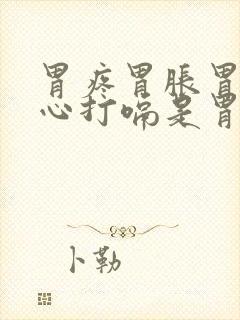 胃疼胃胀胃
心打嗝是胃
卜勒